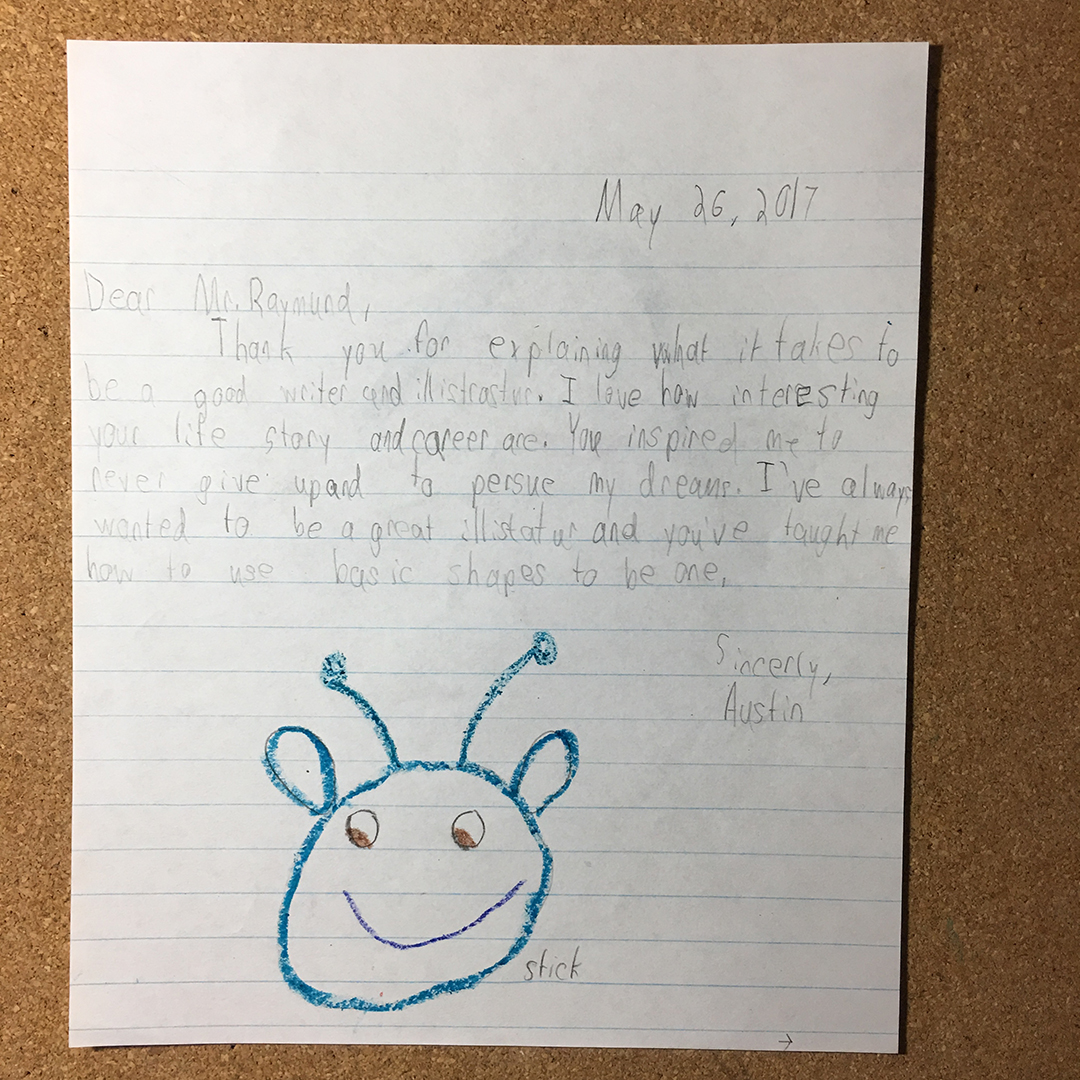 May 26, 2017
Dear Mr. Raymund,
Thank you for explaining what it takes to
be a good writer and illistrastur. I love how interesting
your life story and career are. You inspired me to
never give up and to persue my dreams. I've always
wanted to be a great illistatur and you've taught me
how to use basic shapes to be one.
Sincerly,
Austin
stick
→